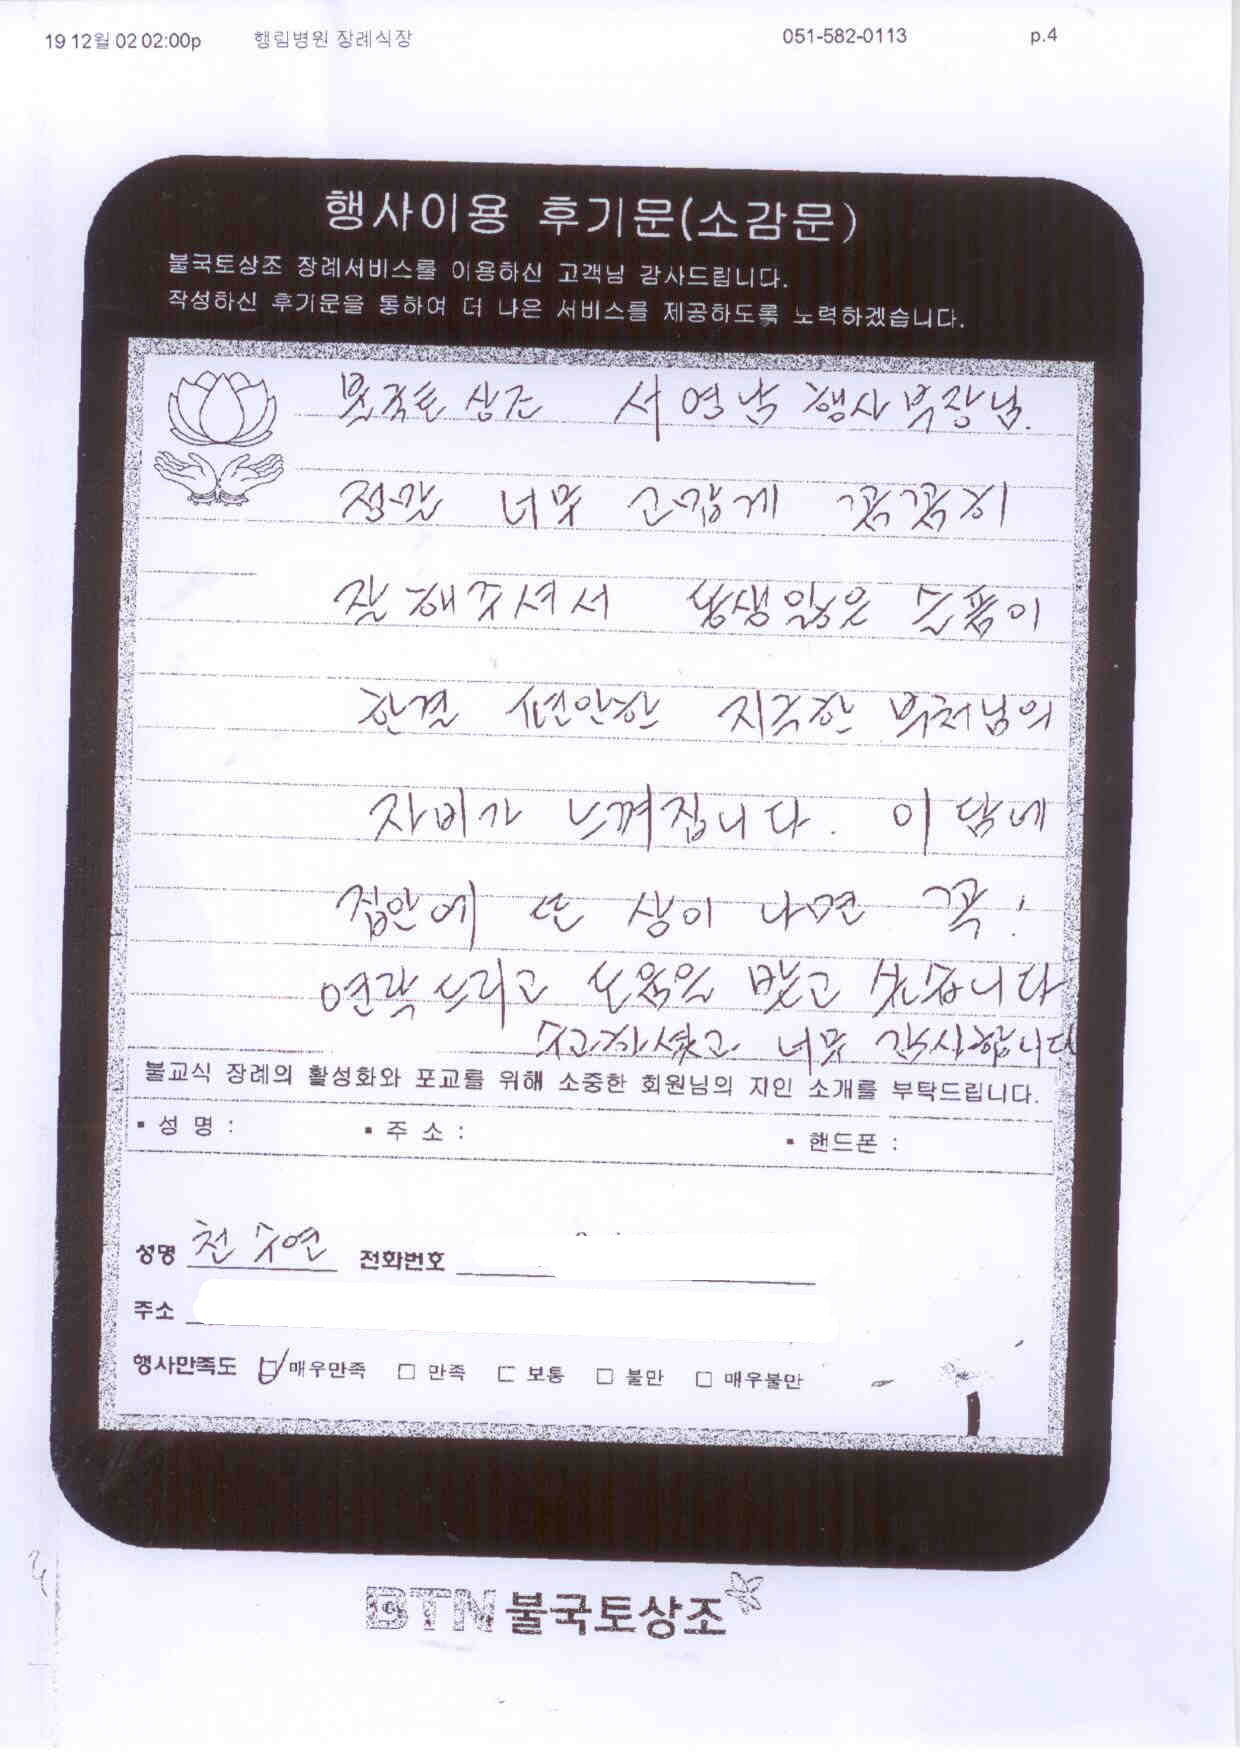 19 12월 02 02:00p 행림병원 장례식장 051-582-0113 p.4
행사이용 후기문(소감문)
불국토상조 장례서비스를 이용하신 고객님 감사드립니다.
작성하신 후기문을 통하여 더 나은 서비스를 제공하도록 노력하겠습니다.
불국토 상조 서영남 행사부장님.
정말 너무 고맙게 꼼꼼히
잘 해주셔서 동생잃은 슬픔이
한결 편안한 지극한 부처님의
자비가 느껴집니다. 이 담에
집안에 또 상이 나면 꼭!
연락드리고 도움을 받고 싶습니다
수고하셨고 너무 감사합니다
불교식 장례의 활성화와 포교를 위해 소중한 회원님의 지인 소개를 부탁드립니다.
▪ 성 명 : ▪ 주 소 : ▪ 핸드폰 :
성명 천수연 전화번호
주소
행사만족도 ☑ 매우만족 □ 만족 □ 보통 □ 불만 □ 매우불만
BTN 불국토상조